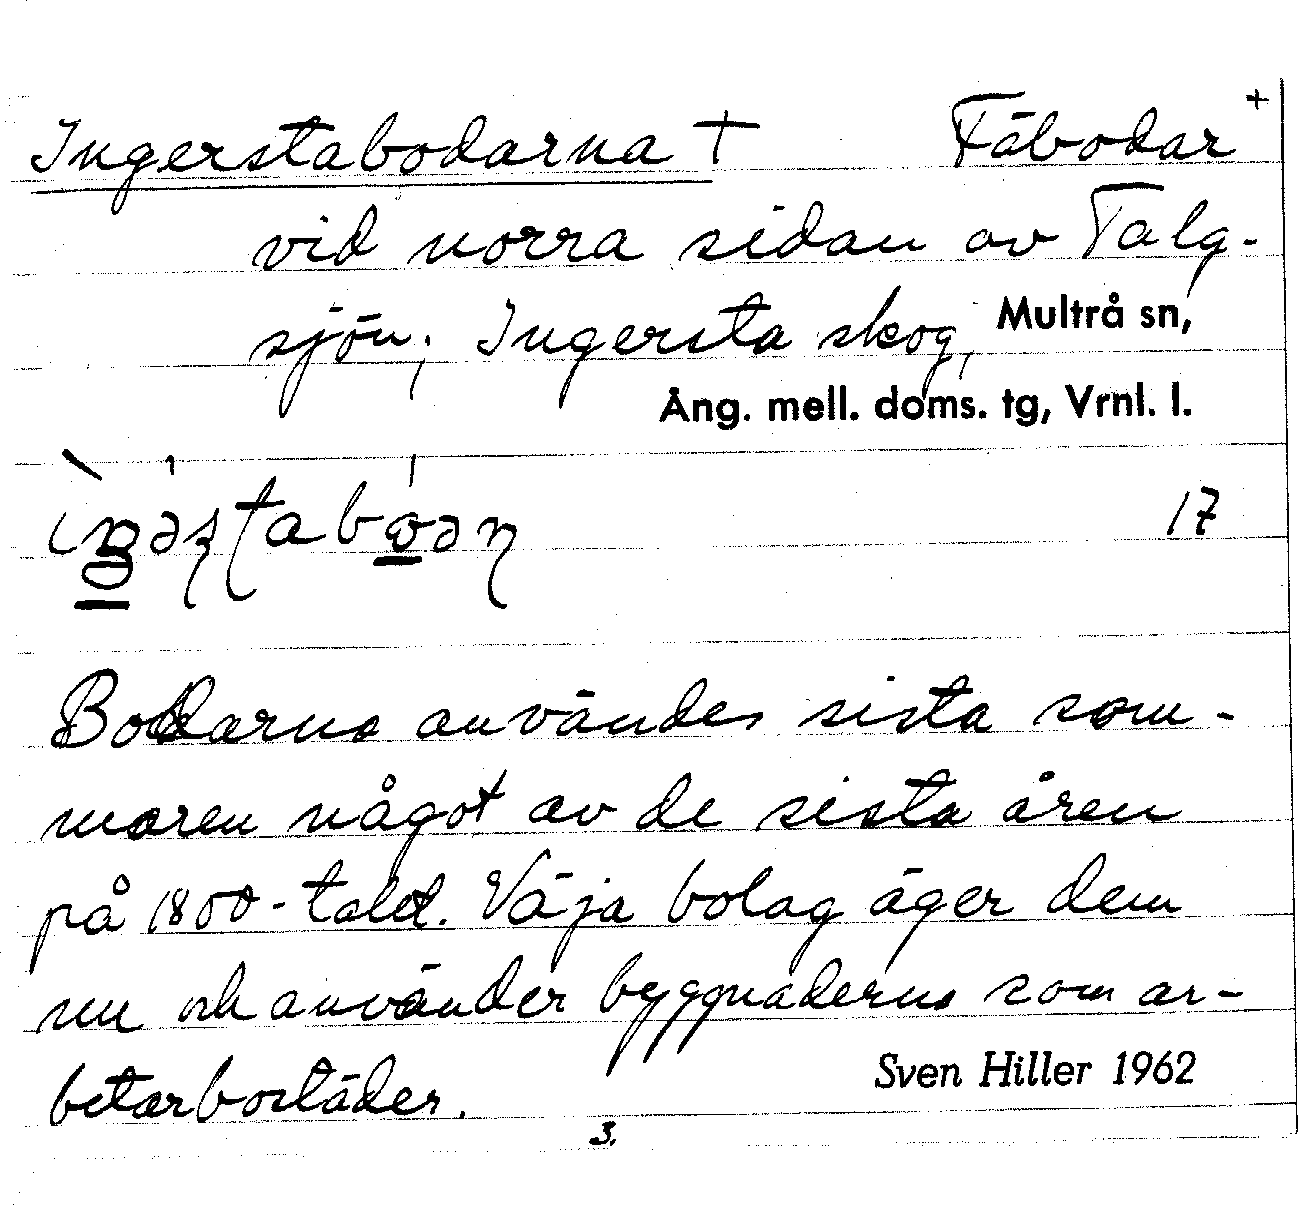 Ingerstabodarna † Fäbodar +
vid norra sidan av Talg-
sjön; Ingersta skog, Multrå sn,
Ång. mell. doms. tg, Vrnl. l.
17
Bodarna användes sista som-
maren något av de sista åren
på 1800-talet. Väja bolag äger dem
nu och använder byggnaderna som ar-
betarbostäder. Sven Hiller 1962
3.